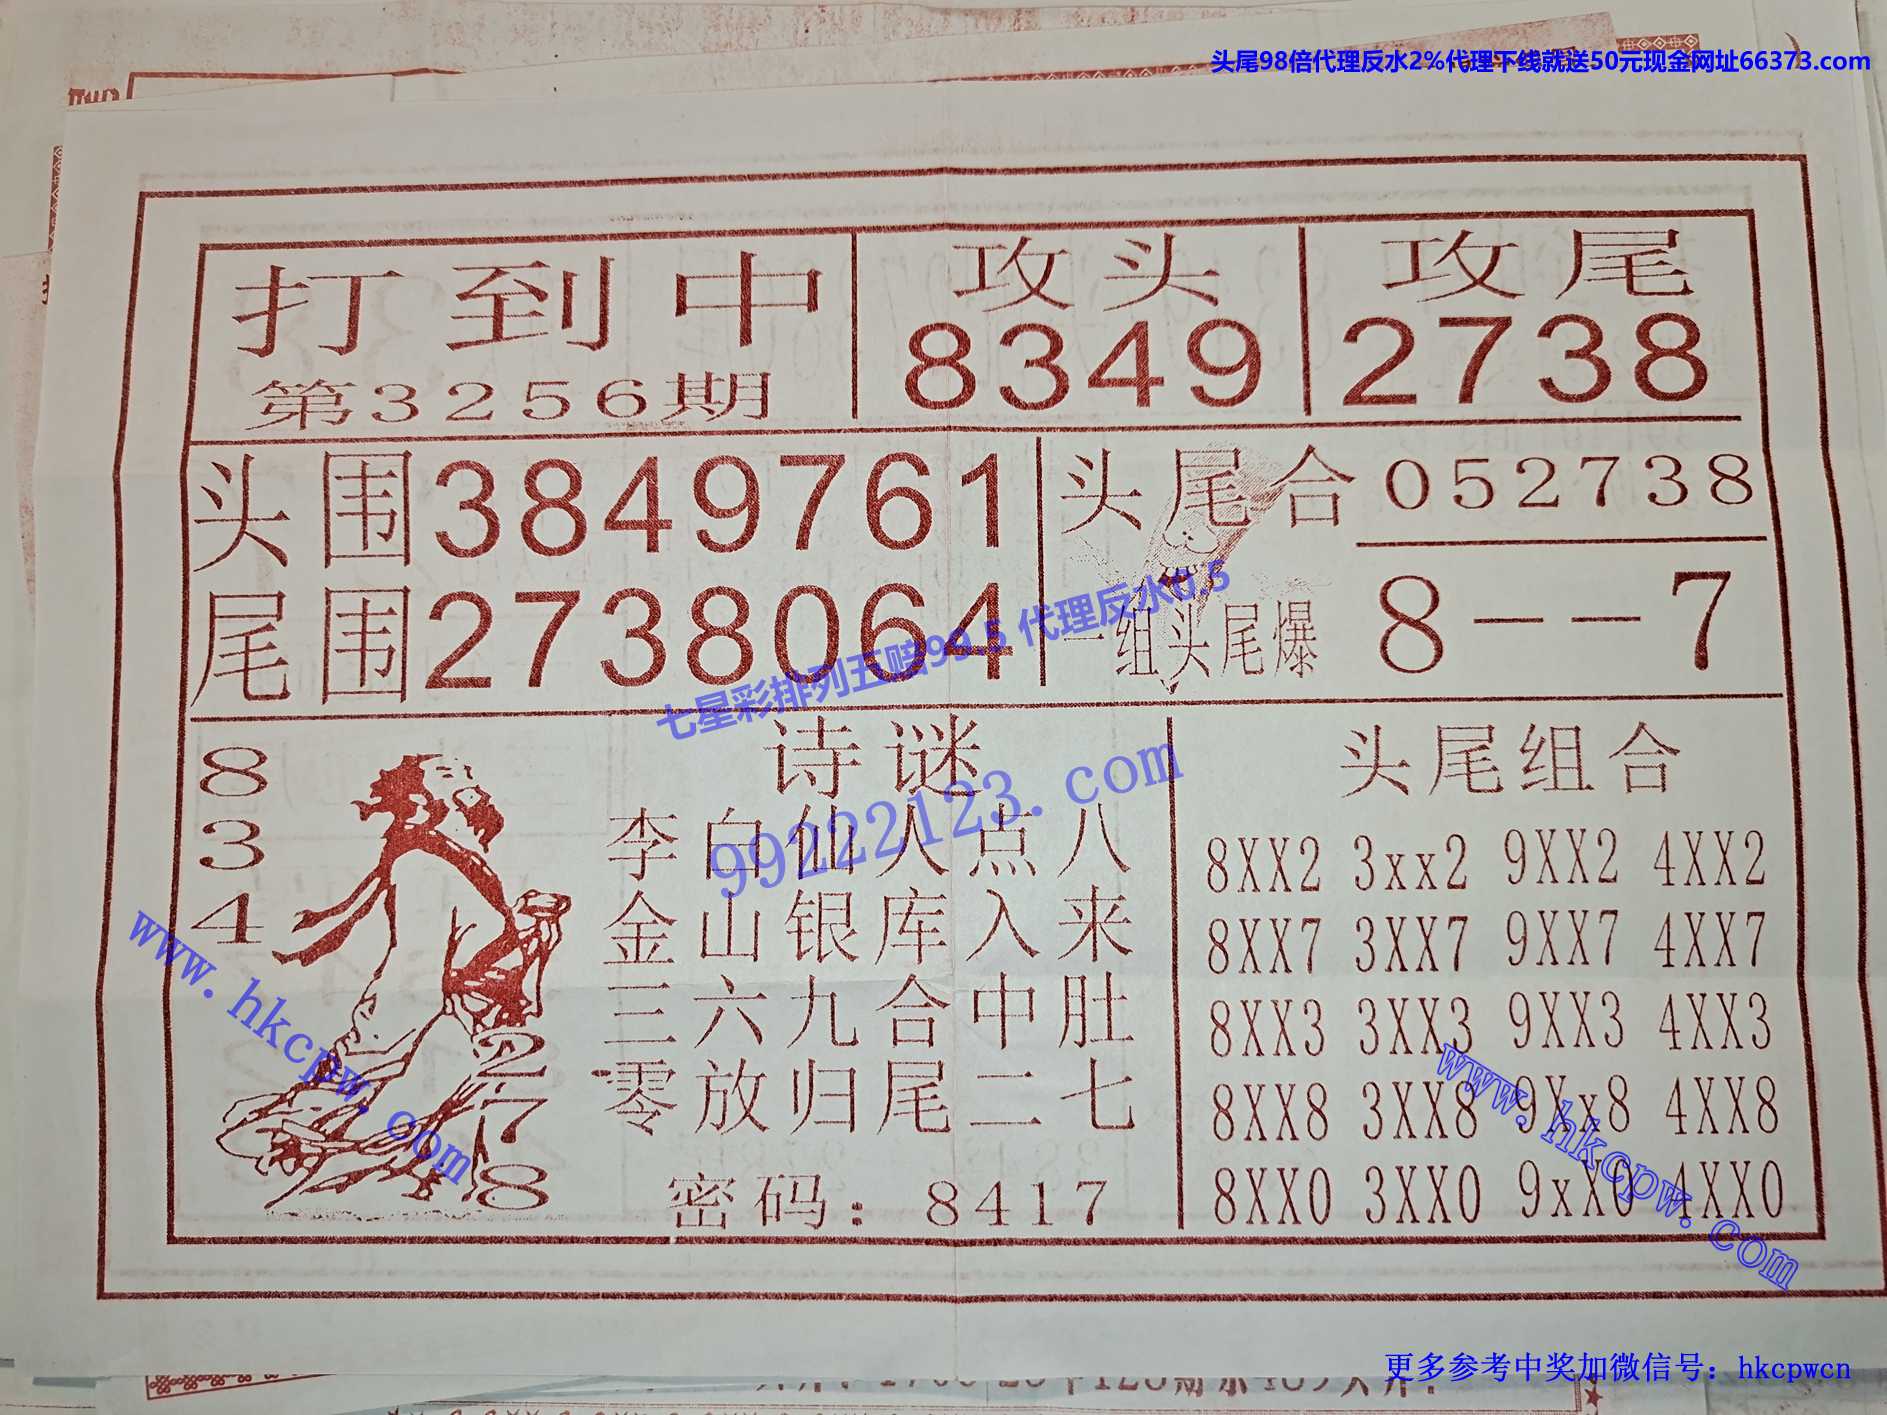 头尾98倍代理反水2%代理下线就送50元现金网址66373.com
打到中
第3256期
攻头
8349
攻尾
2738
头围3849761
尾围2738064
头尾合 052738
一组头尾爆 8--7
七星彩排列五赔99.5 代理反水0.5
99222123.com
8
3
4
2
7
8
诗谜
李白仙人点八
金山银库入来
三六九合中肚
零放归尾二七
密码：8417
头尾组合
8XX2 3xx2 9XX2 4XX2
8XX7 3XX7 9XX7 4XX7
8XX3 3XX3 9XX3 4XX3
8XX8 3XX8 9Xx8 4XX8
8XX0 3XX0 9xX0 4XX0
www.hkcpw.com
www.hkcpw.com
更多参考中奖加微信号：hkcpwcn